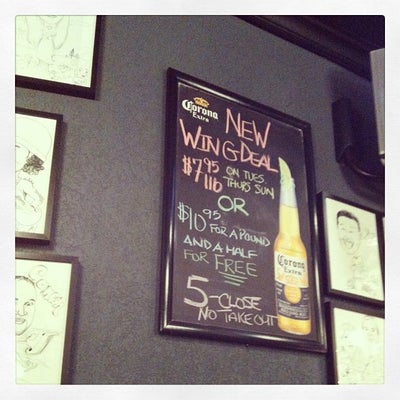 Corona
Extra
NEW
WING DEAL
$7.95 ON TUES
1lb THURS SUN
OR
$10.95
FOR A POUND
AND A HALF
FOR FREE
5-CLOSE
NO TAKE OUT
Corona
Extra